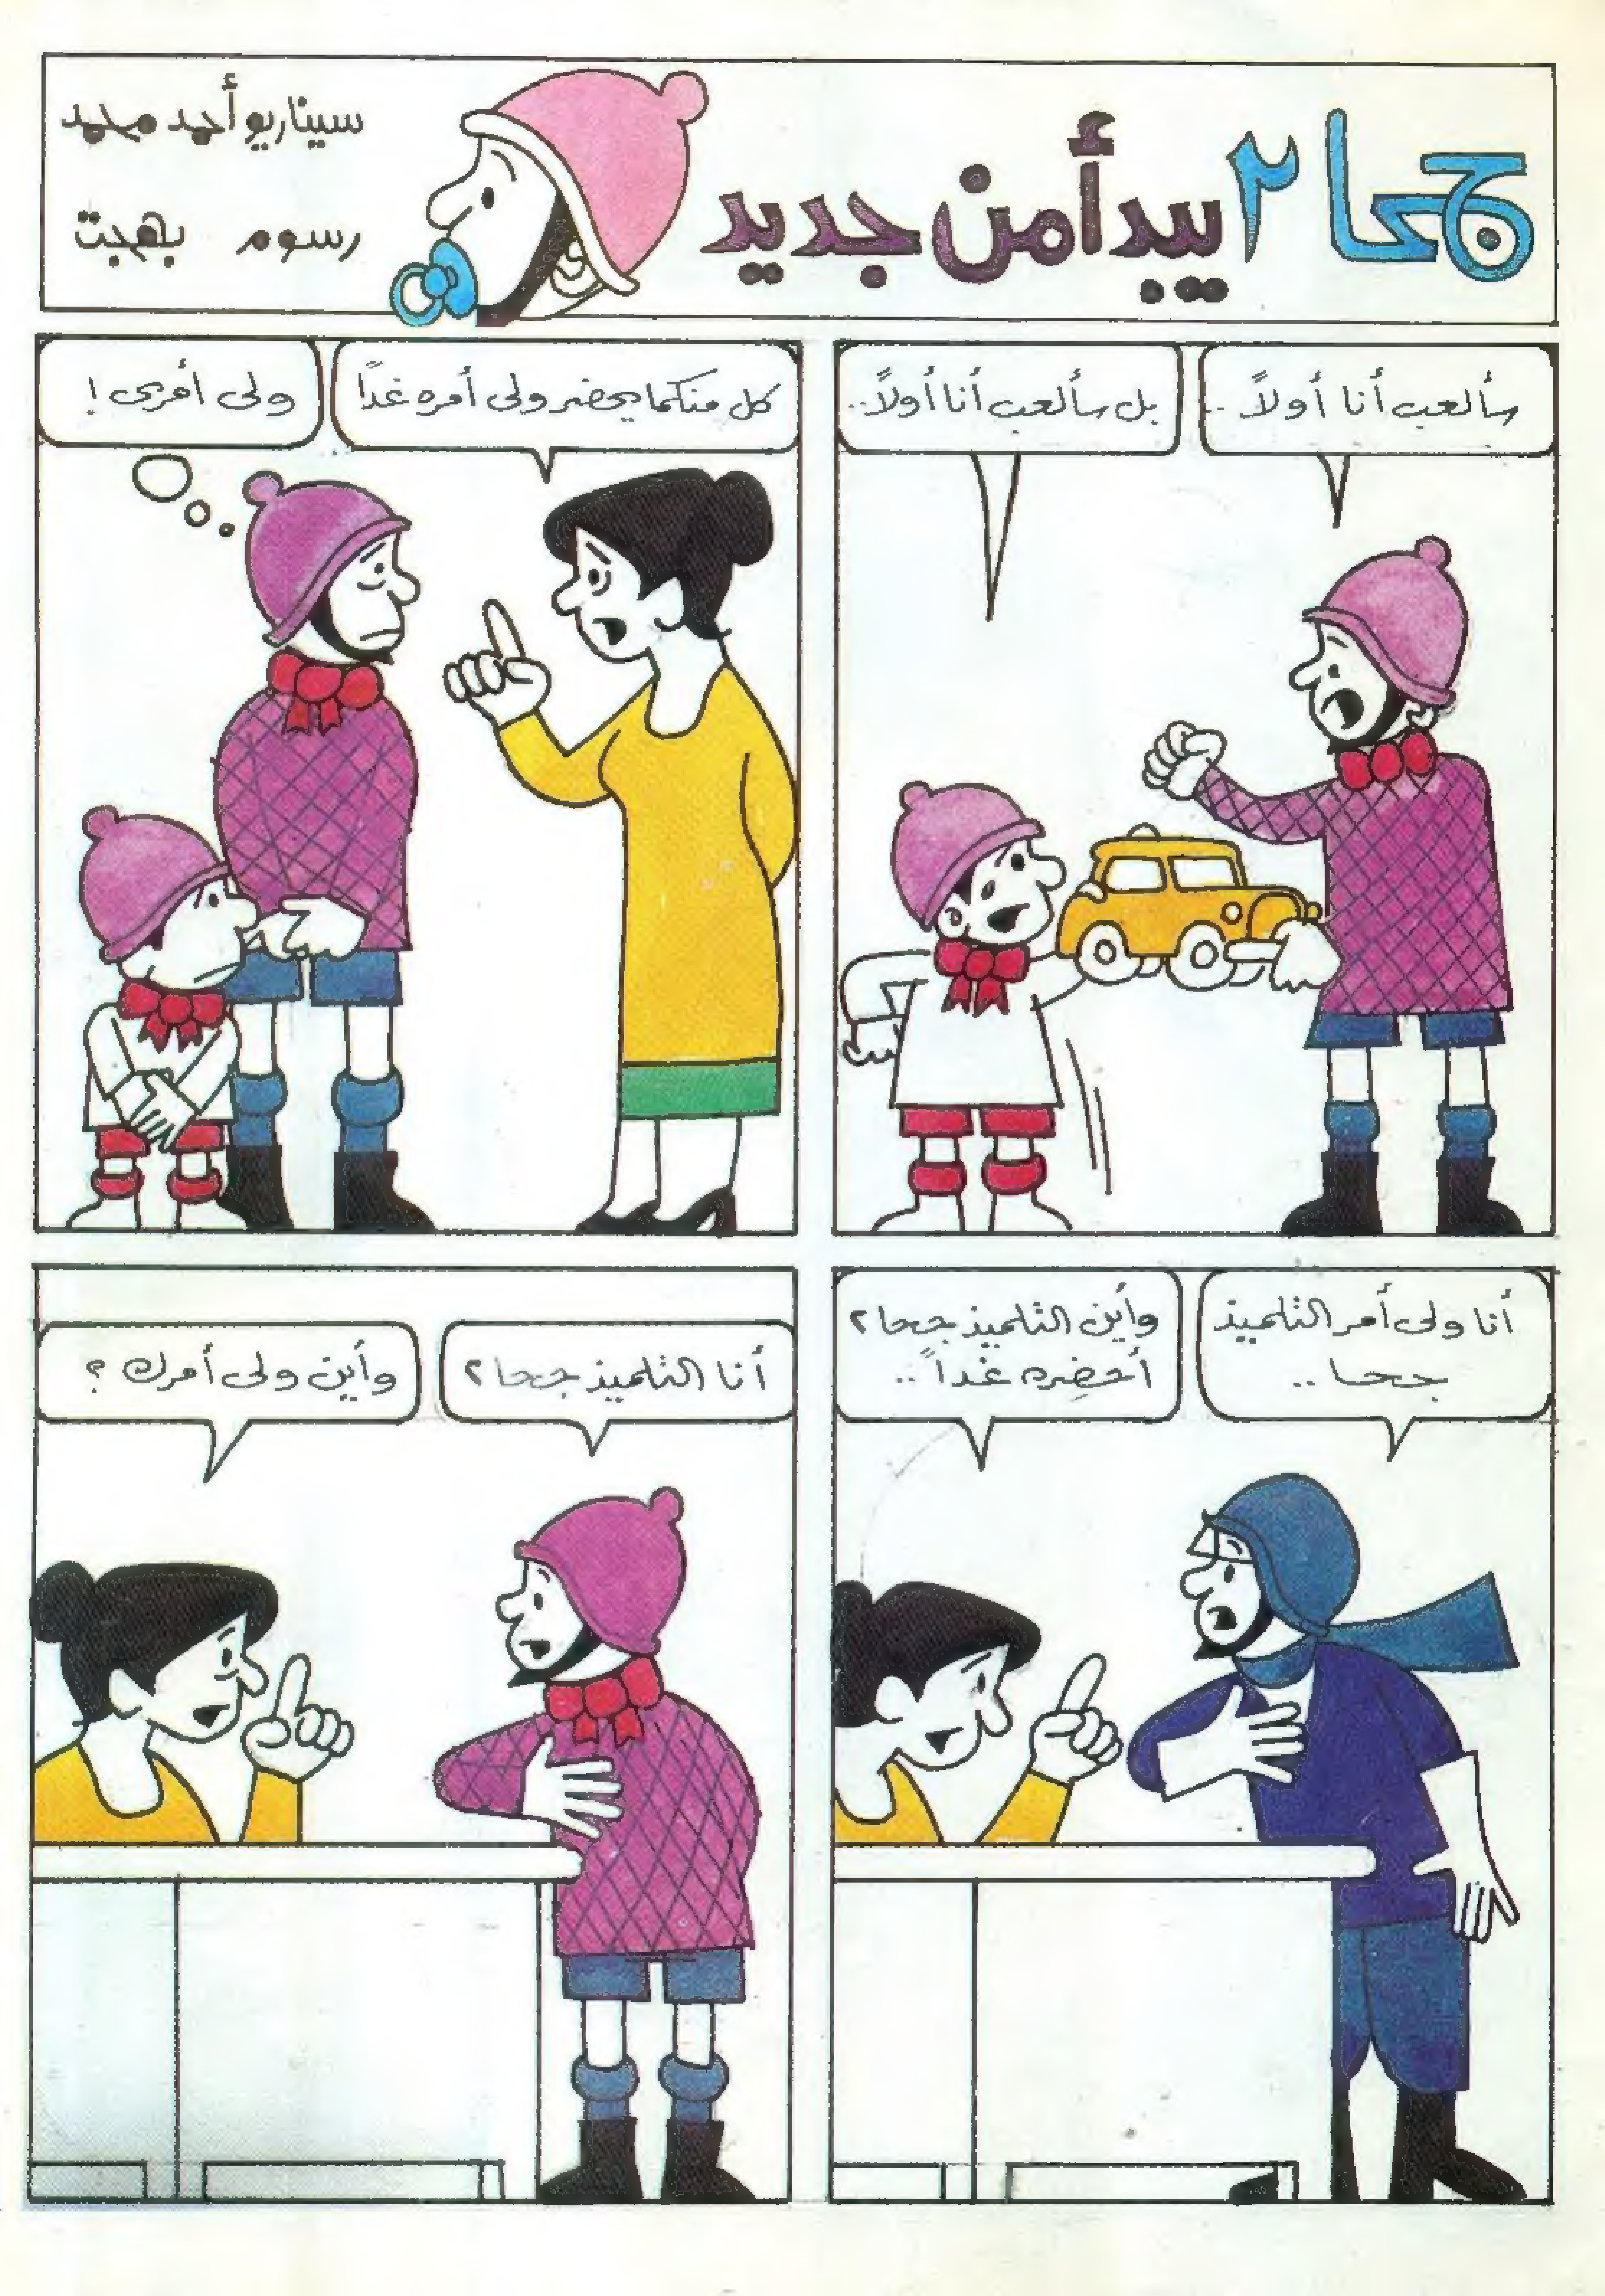 جحا ٢ يبدأ من جديد
سيناريو أحمد محمد
رسوم بهجت
سألعب أنا أولاً ..
بل سألعب أنا أولاً ..
كل منكما يحضر ولى أمره غداً
ولى أمرى !
أنا ولى أمر التلميذ
جحا ..
وأين التلميذ جحا ٢
أحضره غداً ..
أنا التلميذ جحا ٢
وأين ولى أمرك ؟